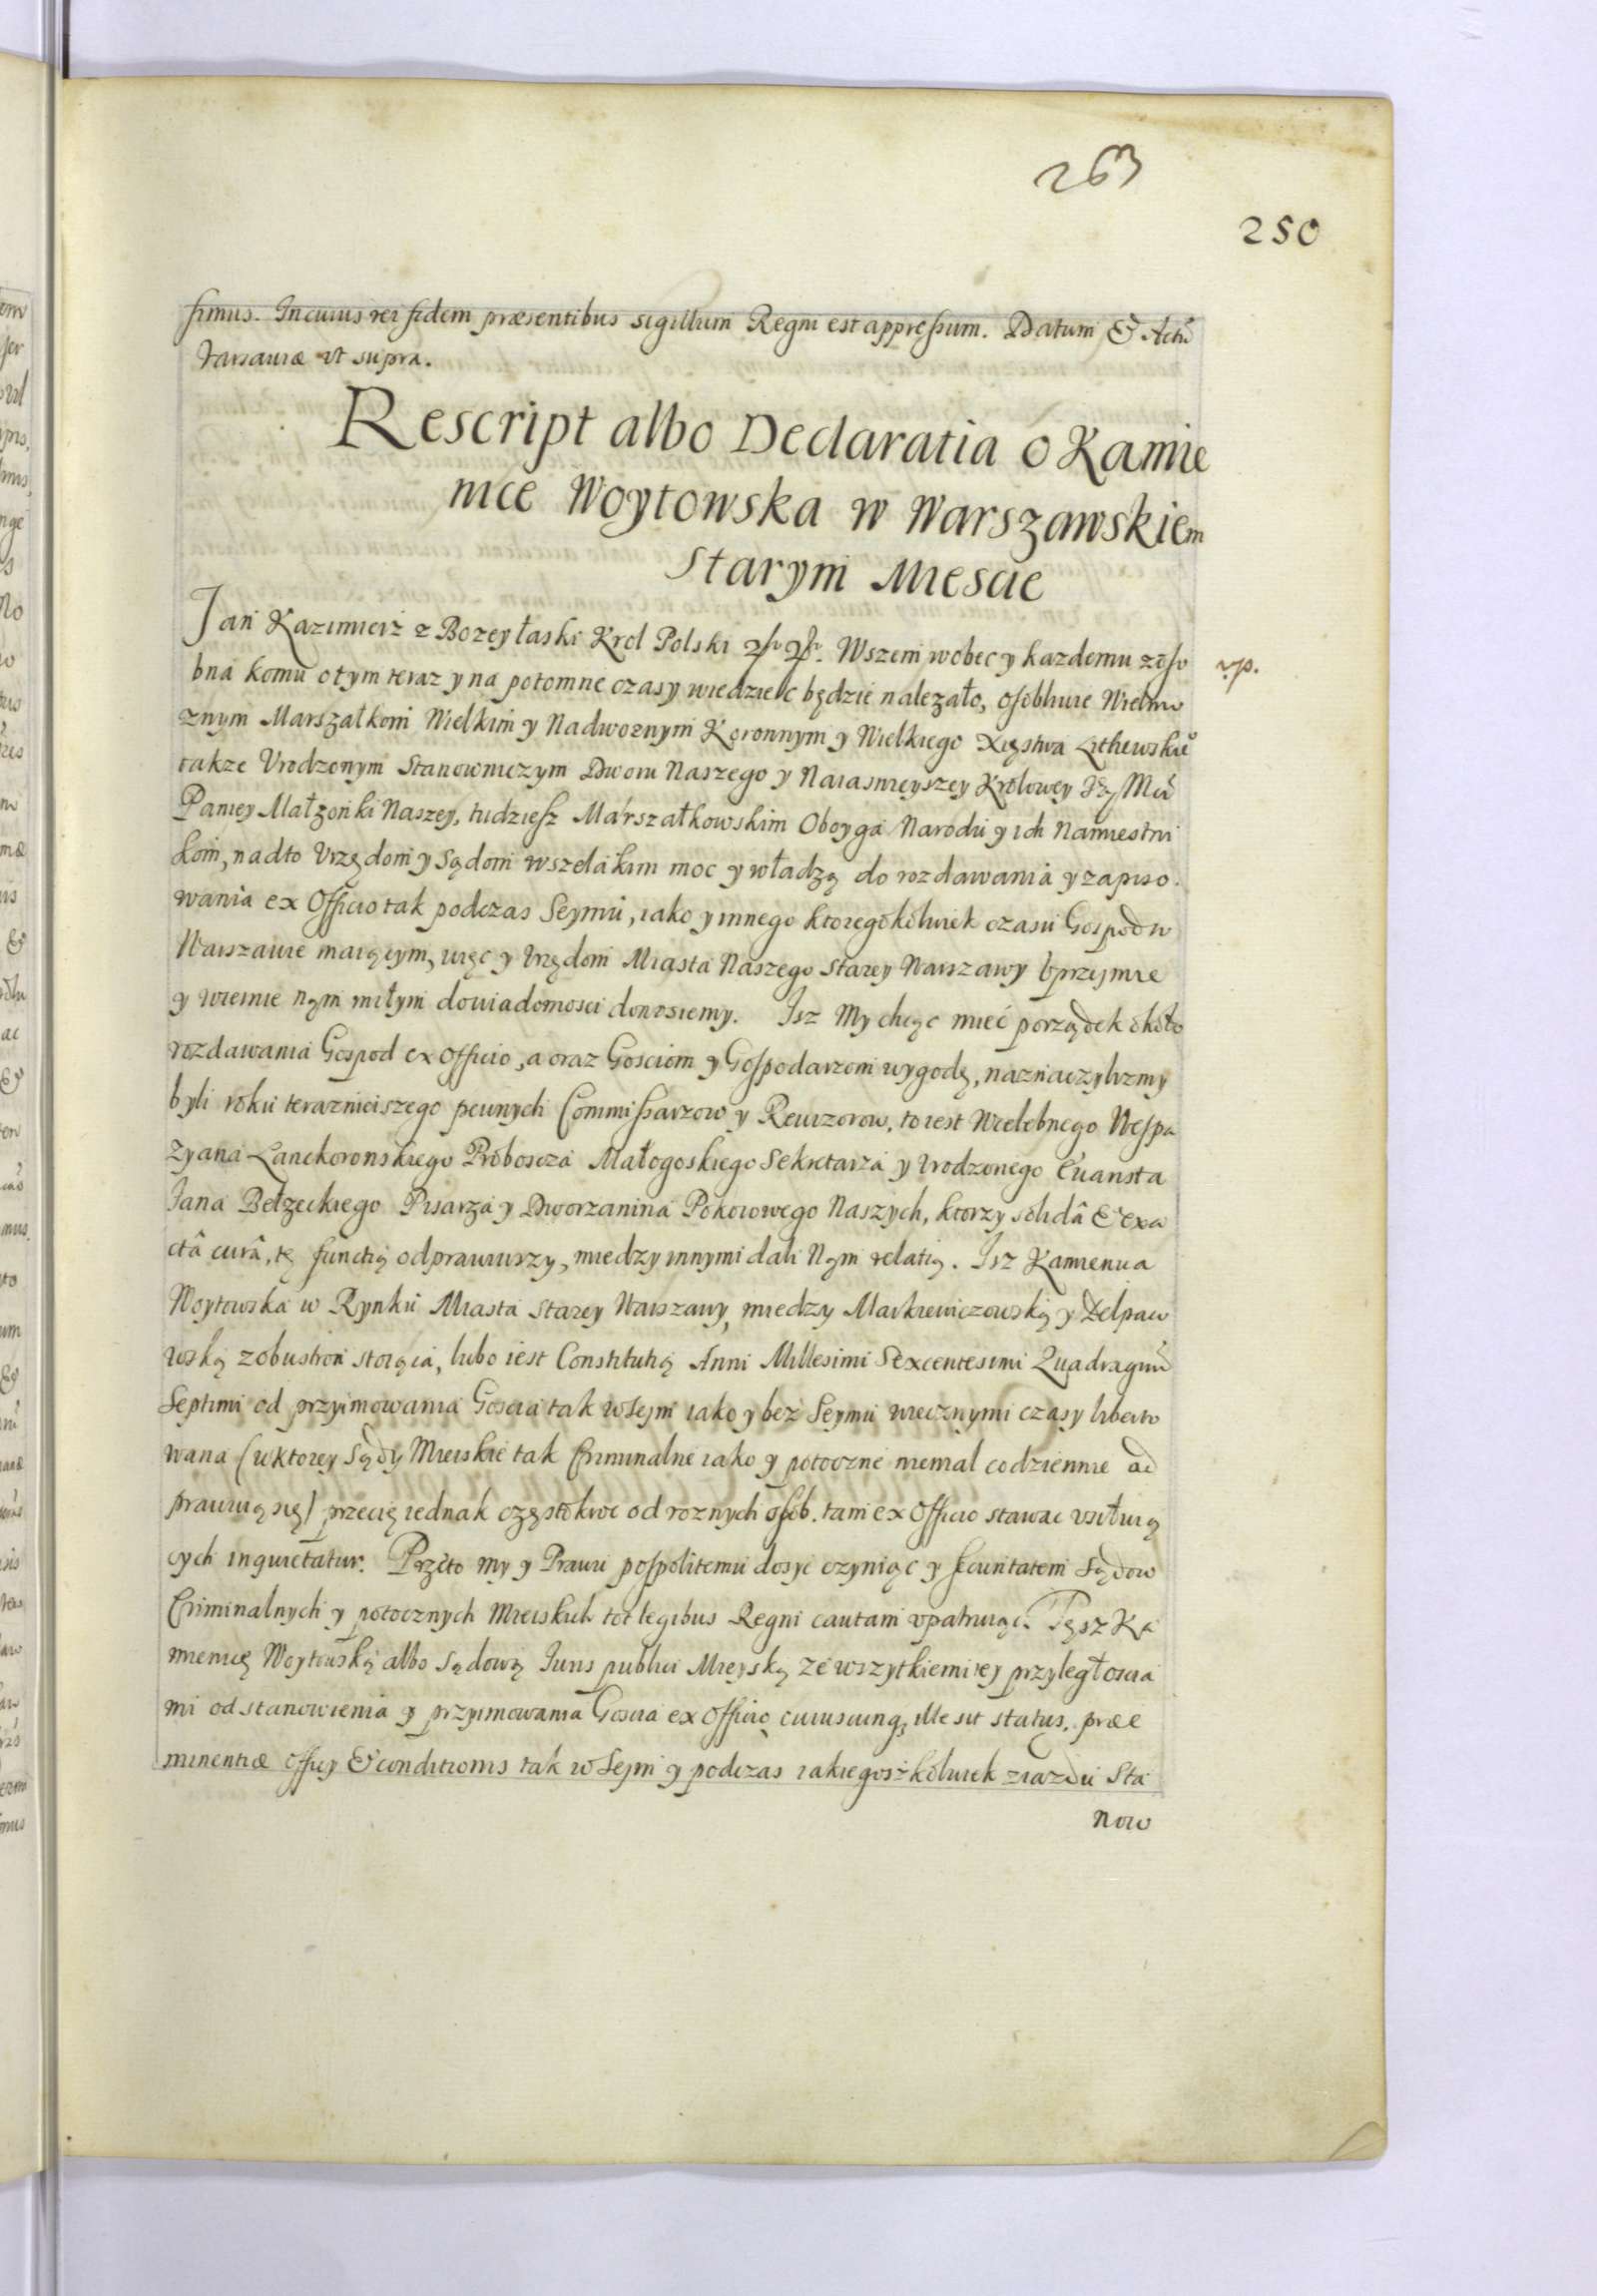 263
250
simus. In cuius rei fidem præsentibus sigillum Regni est appressum. Datum & Actũ
Varsaviæ ut supra.
Rescript albo Declaratia o Kamie
nice Woytowska w Warszawskiem
Starym Miescie
Jan Kazimierz z Bozey łaski Krol Polski &c &c. Wszem wobec y kazdemu zoso
bna komu o tym teraz y na potomne czasy wiedziec będzie nalezało, osobliwie Wielmo
vp.
znym Marszałkom Wielkim y Nadwornym Koronnym y Wielkiego Xięstwa Litewskie
takze Urodzonym Stanowniczym Dworu Naszego y Naiasnieyszey Krolowey Mci
Paniey Małzonki Naszey, tudziesz Marszałkowskim Oboyga Narodu y ich Namiestni
kom, nadto Urzędom y Sądom wszelakim moc y władzą do rozdawania y zapiso
wania ex Officio tak podczas Seymu, iako y innego ktoregokolwiek czasu Gospod w
Warszawie maiącym, więc y Urzędom Miasta Naszego Starey Warszawy Uprzejmie
y wiernie nam miłym do wiadomosci donosiemy. Isz My chcąc mieć porządek około
rozdawania Gospod ex Officio, a oraz Gosciom y Gospodarzom wygodę, naznaczylizmy
byli roku terazniejszego pewnych Commissarzow y Rewizorow, to iest Wielebnego Wespa
zyana Lanckoronskiego Proboscza Małogoskiego Sekretarza y Urodzonego Ewarista
Jana Bełzeckiego Pisarza y Dworzanina Pokoiowego Naszych, ktorzy solidâ & exa
ctâ curâ, tę functią odprawiwszy, miedzy innymi dali Nam relatią. Isz Kamienica
Woytowska w Rynku Miasta Starey Warszawy, miedzy Markiewiczowską y Delpaw
wską z obu stron stoiąca, lubo iest Constitutią Anni Millesimi Sexcentesimi Quadragesi
Septimi od przyimowania Goscia tak w Sejm iako y bez Seymu wiecznymi czasy liberto
wana (w ktorey Sądy Mieiskie tak Criminalne iako y potoczne niemal codziennie od
prawuią się) przecię iednak częstokroc od roznych osob. tam ex Officio stawac usiłuią
cych inquietatur. Przeto my y Prawu pospolitemu dosyc czyniąc y securitatem Sądow
Criminalnych y potocznych Mieiskich tot legibus Regni cautam upatruiąc. Tęsz Ka
mienicę Woytowską albo Sądową Juris publici Mieyską ze wszytkiemi iey przyległoscia
mi od stanowienia y przyimowania Goscia ex Officio cuiuscunq, ille sit status, præe
minentiæ officy & conditionis tak w Sejm y podczas iakiegoszkolwiek ziazdu Sta
now